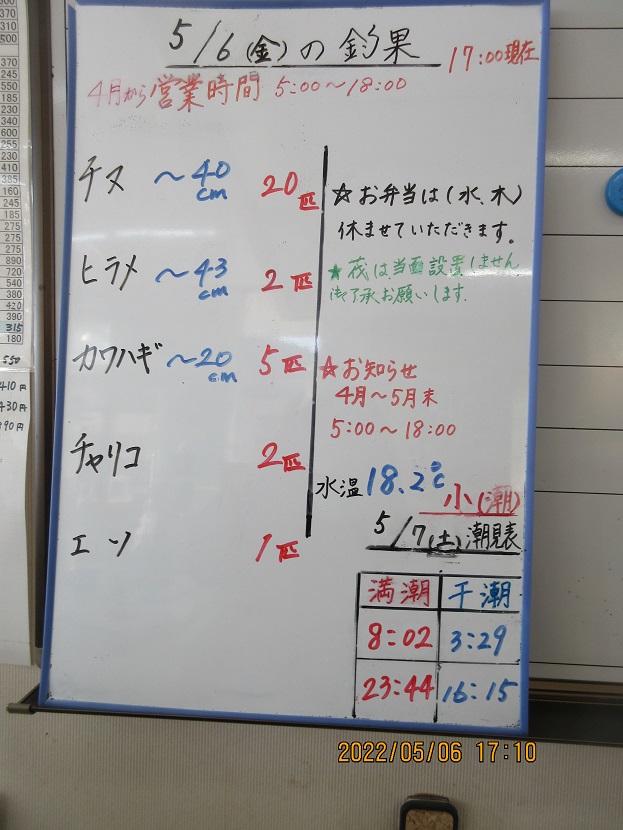 5/6(金)の釣果
17:00現在
4月から営業時間 5:00〜18:00
チヌ 〜40cm 20匹
ヒラメ 〜43cm 2匹
カワハギ 〜20cm 5匹
チャリコ 2匹
エソ 1匹
☆お弁当は(水、木)
休ませていただきます。
★筏は当面設置しません
御了承お願いします.
☆お知らせ
4月〜5月末
5:00〜18:00
水温18.2℃
小(潮)
5/7(土)潮見表
満潮 干潮
8:02 3:29
23:44 16:15
370
245
550
185
230
300
500
600
255
230
410
385
160
245
215
275
275
890
720
540
380
420
390
315
180
550
410円
430円
390円
2022/05/06 17:10